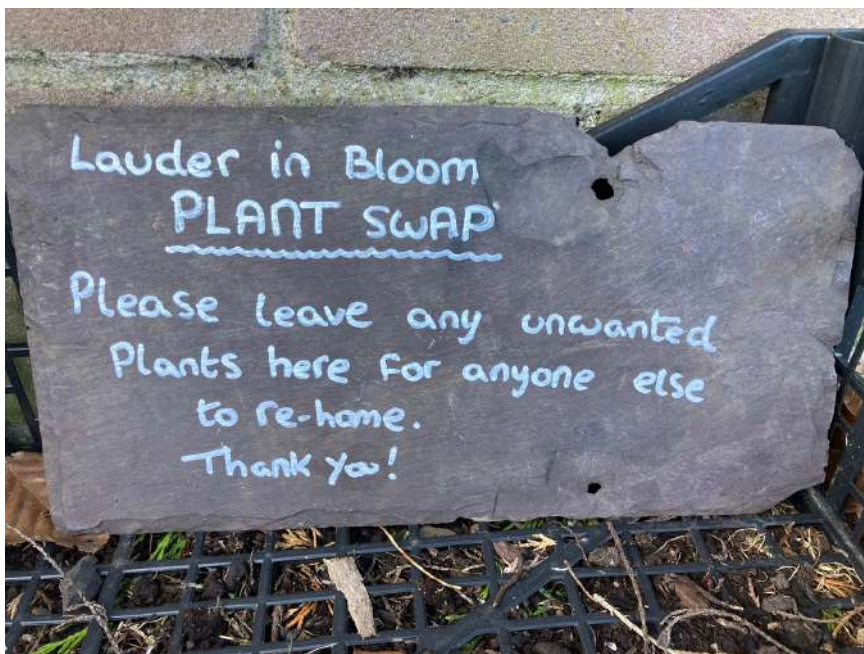 Lauder in Bloom
PLANT SWAP
Please leave any unwanted
Plants here for anyone else
to re-home.
Thank you!